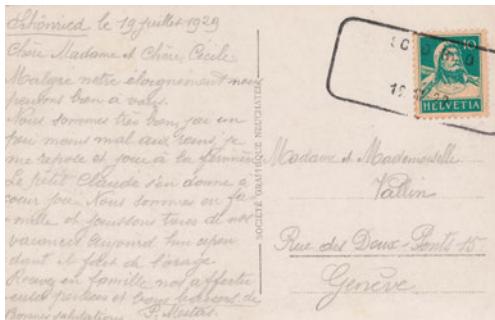 Schönried le 19 juillet 1929
Chère Madame et Chère Cécile
Malgré notre éloignement nous
pensons bien à vous.
Nous sommes très bien, j'ai un
peu moins mal aux reins, je
me repose et joue à la
Le petit Claude s'en donne à
cœur joie. Nous sommes en fa-
mille et jouissons tous de nos
vacances aujourd'hui cepen
dant il fait de l'orage
Recevez en famille nos affectu
euses pensées et bons baisers de
Bonnes salutations P.
SOCIÉTÉ GRAPHIQUE NEUCHATEL
10
HELVETIA
Madame et Mademoiselle
Vallin
Rue des Deux-Ponts 15
Genève